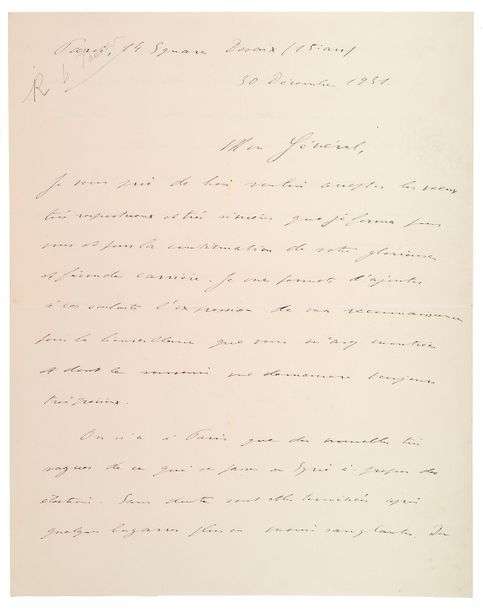 Paris, 14 Square Desaix (15e arr)
30 Décembre 1931
Mon Général,
Je vous prie de bien vouloir accepter les vœux
très respectueux et très sincères que je forme pour
vous et pour la continuation de votre glorieuse
et féconde carrière. Je me permets d'ajouter
à ces souhaits l'expression de ma reconnaissance
pour la bienveillance que vous m'avez montrée
et dont le souvenir me demeurera toujours
très précieux.
On n'a à Paris que des nouvelles très
vagues de ce qui se passe en Syrie à propos des
élections. Sans doute sont-elles terminées après
quelques bagarres plus ou moins sanglantes. Du